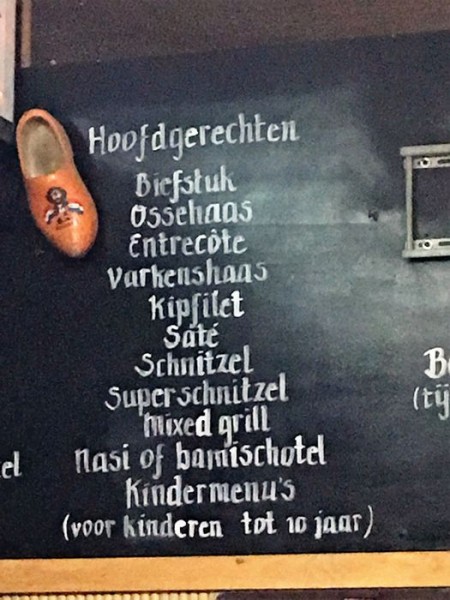 Hoofdgerechten
Biefstuk
Ossehaas
Entrecôte
Varkenshaas
Kipfilet
Saté
Schnitzel
Superschnitzel
Mixed grill
Nasi of bamischotel
Kindermenu's
(voor kinderen tot 10 jaar)